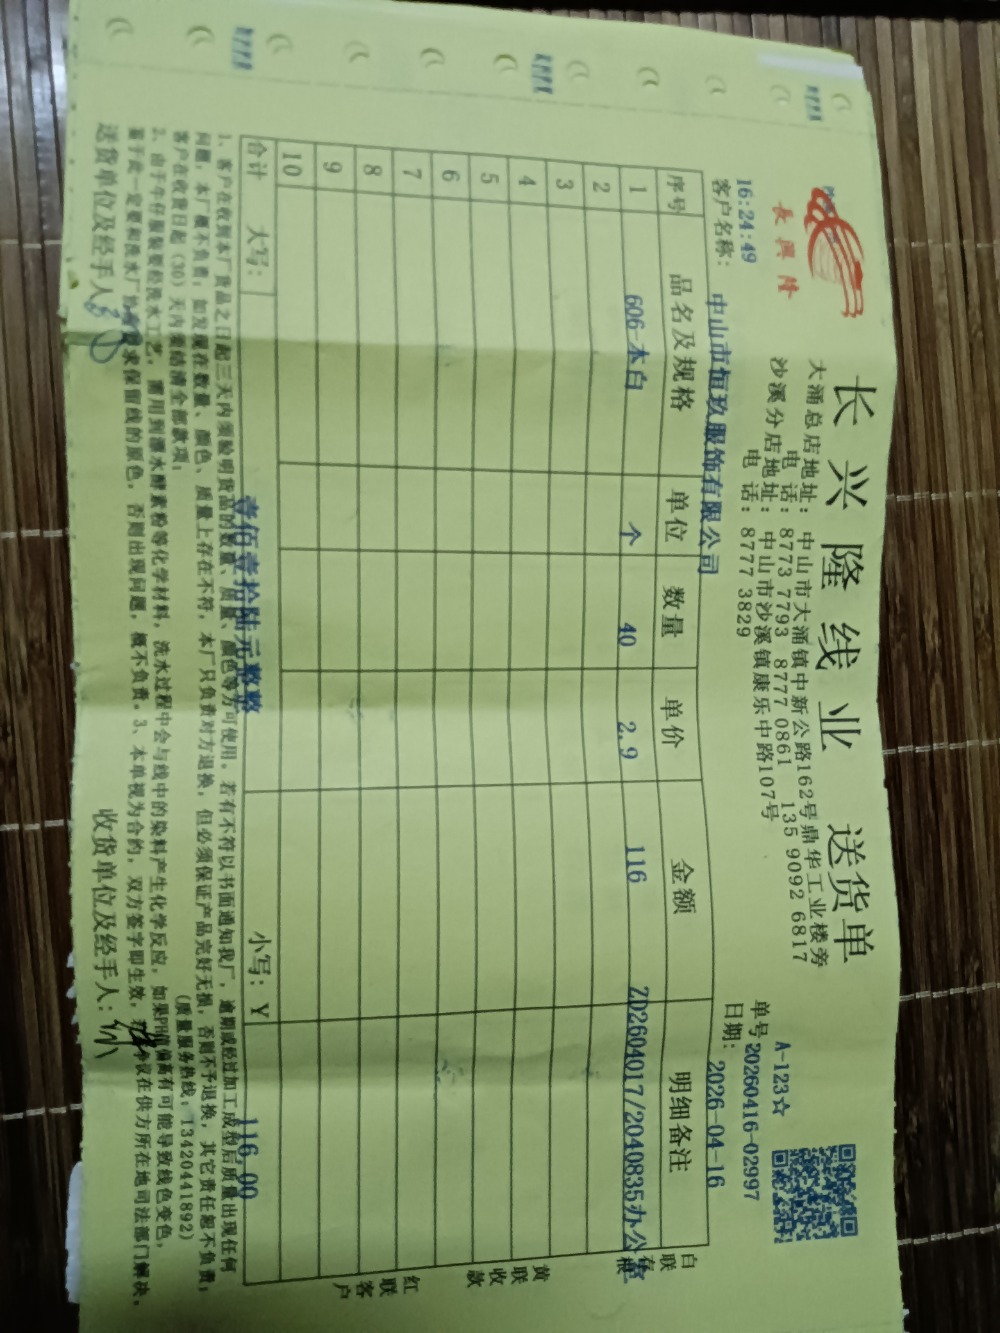 長興隆
长兴隆线业 送货单
大涌总店地址: 中山市大涌镇中新公路162号鼎华工业楼旁
电 话: 8773 7793 8777 0861 135 9092 6817
沙溪分店地址: 中山市沙溪镇康乐中路107号
电 话: 8777 3829
A-123☆
单号 20260416-02997
日期: 2026-04-16
16:24:49
客户名称: 中山市恒玖服饰有限公司
序号 品名及规格 单位 数量 单价 金额 明细备注
1 606-本白 个 40 2.9 116 ZD2604017/2040835办公室
2
3
4
5
6
7
8
9
10
合计 大写: 壹佰壹拾陆元整整 小写: Y 116.00
白联存根
黄联收款
红联客户
1、客户在收到本厂货品之日起三天内须验明货品的数量、质量、颜色等方可使用。若有不符以书面通知我厂,逾期或经过加工成型后质量出现任何
问题,本厂概不负责;如发现在数量、颜色、质量上存在不符,本厂只负责对方退换,但必须保证产品完好无损,否则不予退换,其它责任恕不负责;
客户在收货日起(30)天内要结清全部款项; (质量服务热线:13420441892)
2、由于牛仔服装要经洗水工艺,需用到漂水酵素粉等化学材料,洗水过程中会与线中的染料产生化学反应,如果PH值偏高有可能导致线色变色,
鉴于此一定要和洗水厂 求保留线的原色,否则出现问题,概不负责。3、本单视为合约,双方签字即生效, 争议在供方所在地司法部门解决。
送货单位及经手人: 收货单位及经手人: